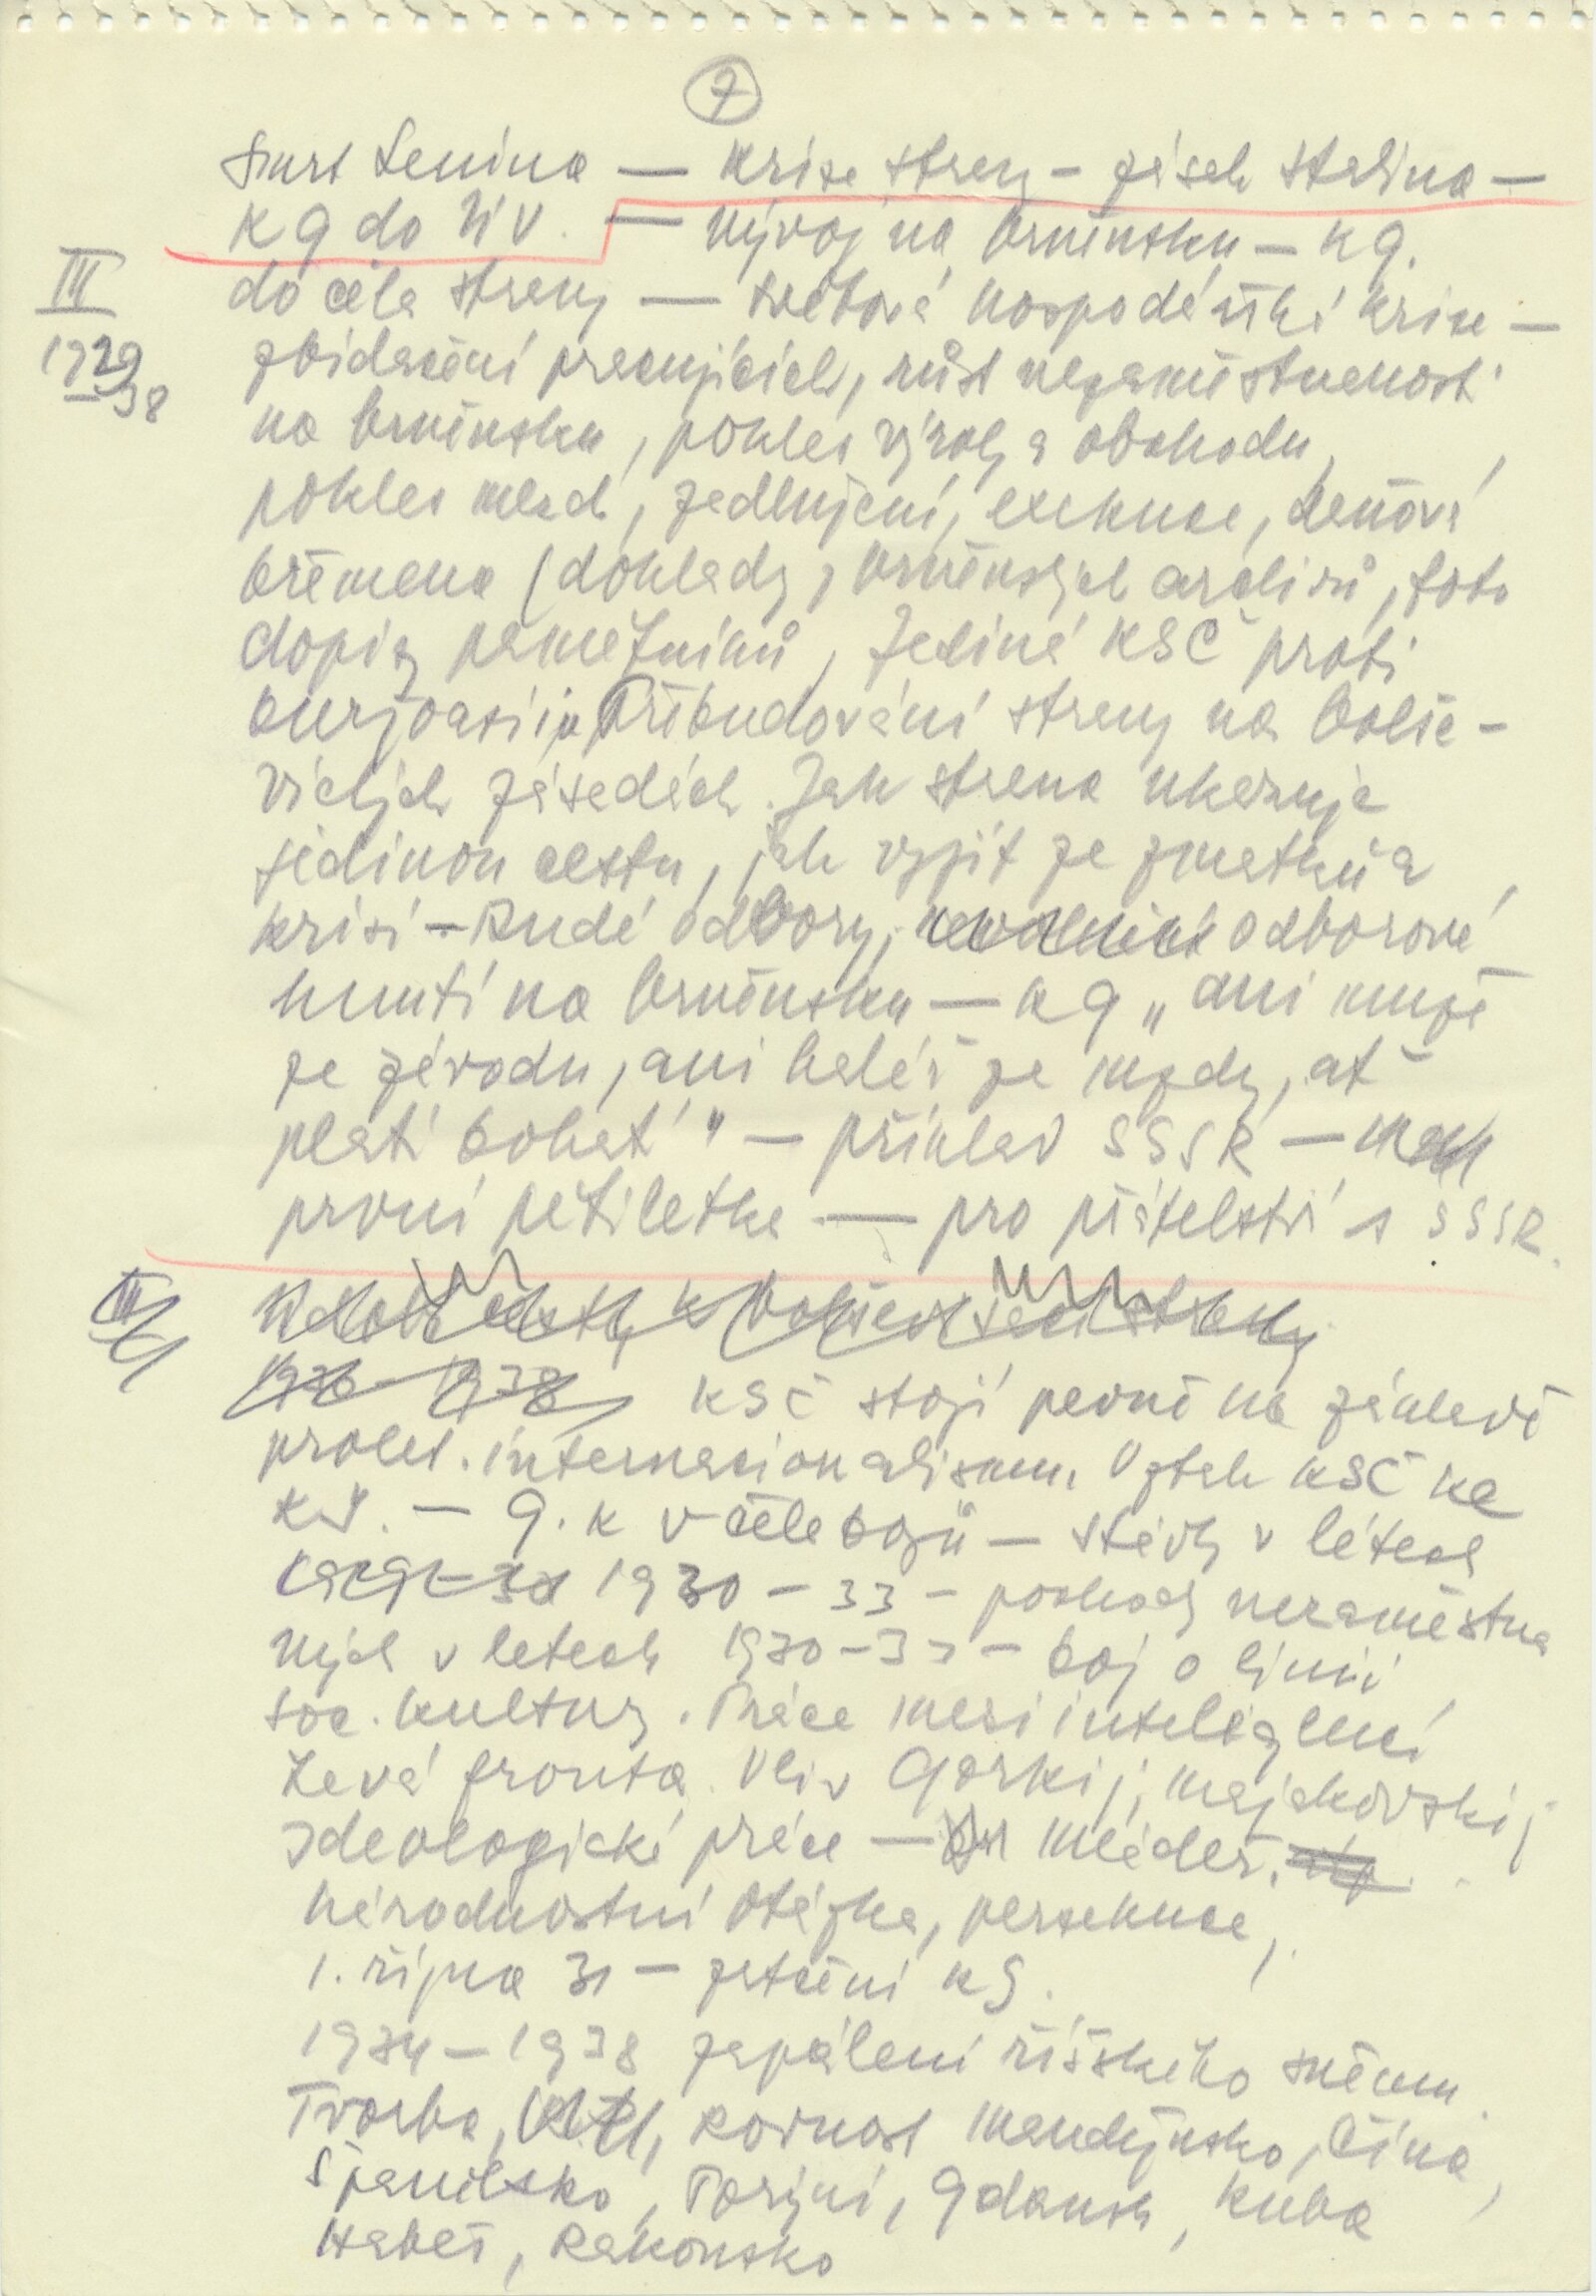 7
Smrt Lenina — krize strany – zásah Stalina —
KG do ÚV. — vývoj na brněnsku — KG.
III do čela strany — světová hospodářská krise —
1929 zbídačení pracujících, růst nezaměstnanosti
–38
na brněnsku, pokles výroby a obchodu,
pokles mezd, zadlužení, exekuce, daňová
břemena (doklady z brněnských archivů, foto
dopisy pamětníků, Jediná KSČ proti
buržoasii, Přebudování strany na bolše-
vických zásadách. Jak strana ukazuje
jedinou cestu, jak vyjít ze zmatků a
krisí – Rudé odbory, odborové
hnutí na brněnsku — KG „ani muže
ze závodu, ani haléř ze mzdy, ať
platí bohatí" — příklad SSSR —
první pětiletka — pro přátelství s SSSR.
1936 – 1938 KSČ stojí pevně na základě
prolet. internacionalismu. Vztah KSČ ke
KI. — G. K v čele bojů — stávky v létech
1930 – 33 – pochody nezaměstna
ných v letech 1930–33 – boj o linii
soc. kultury. Práce mezi inteligencí
Levá fronta. Vliv Gorkij, Majakovskij
Ideologická práce — mládež.
národnostní otázka, persekuce,
1. října 31 – zatčení KG.
1934 – 1938 zapálení říšského sněmu.
Tvorba, Rovnost Mandžusko, Čína,
Španělsko, Gdansk, Kuba
Habeš, Rakousko